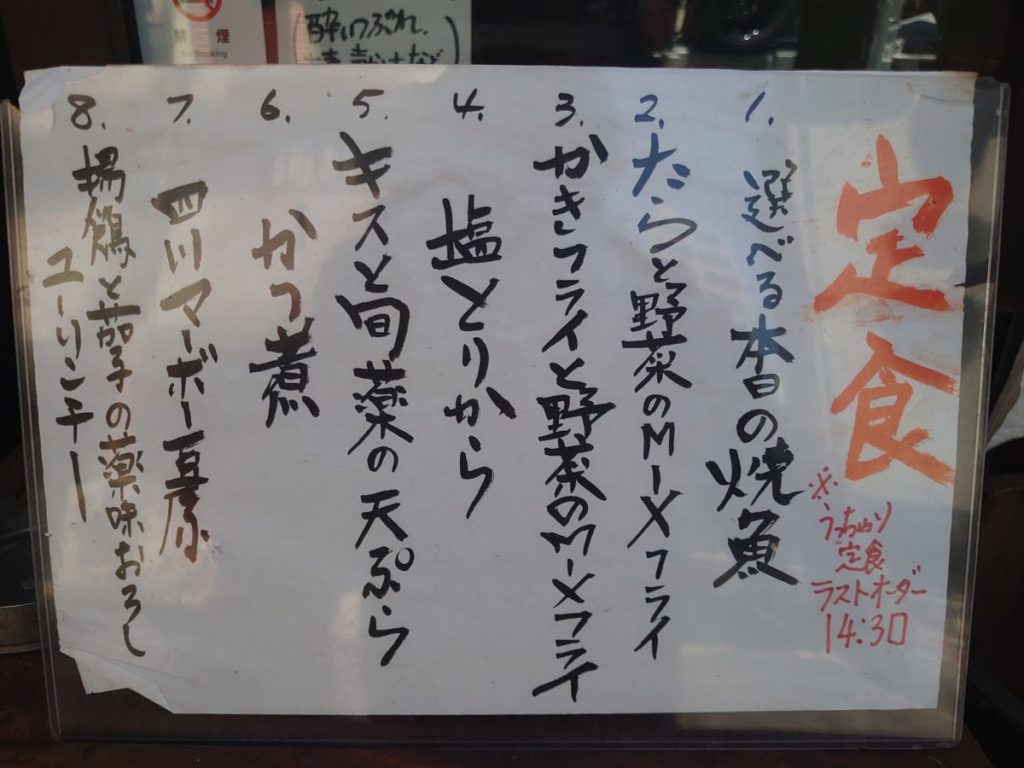 禁 煙
No Smoking
(酔いつぶれ、
定食
※
うっちゃり
定食
ラストオーダー
14:30
1. 選べる本日の焼魚
2. たらと野菜のMIXフライ
3. かきフライと野菜のMIXフライ
4. 塩とりから
5. キスと旬菜の天ぷら
6. かつ煮
7. 四川マーボー豆腐
8. 揚鶏と茄子の薬味おろし
ユーリンチー